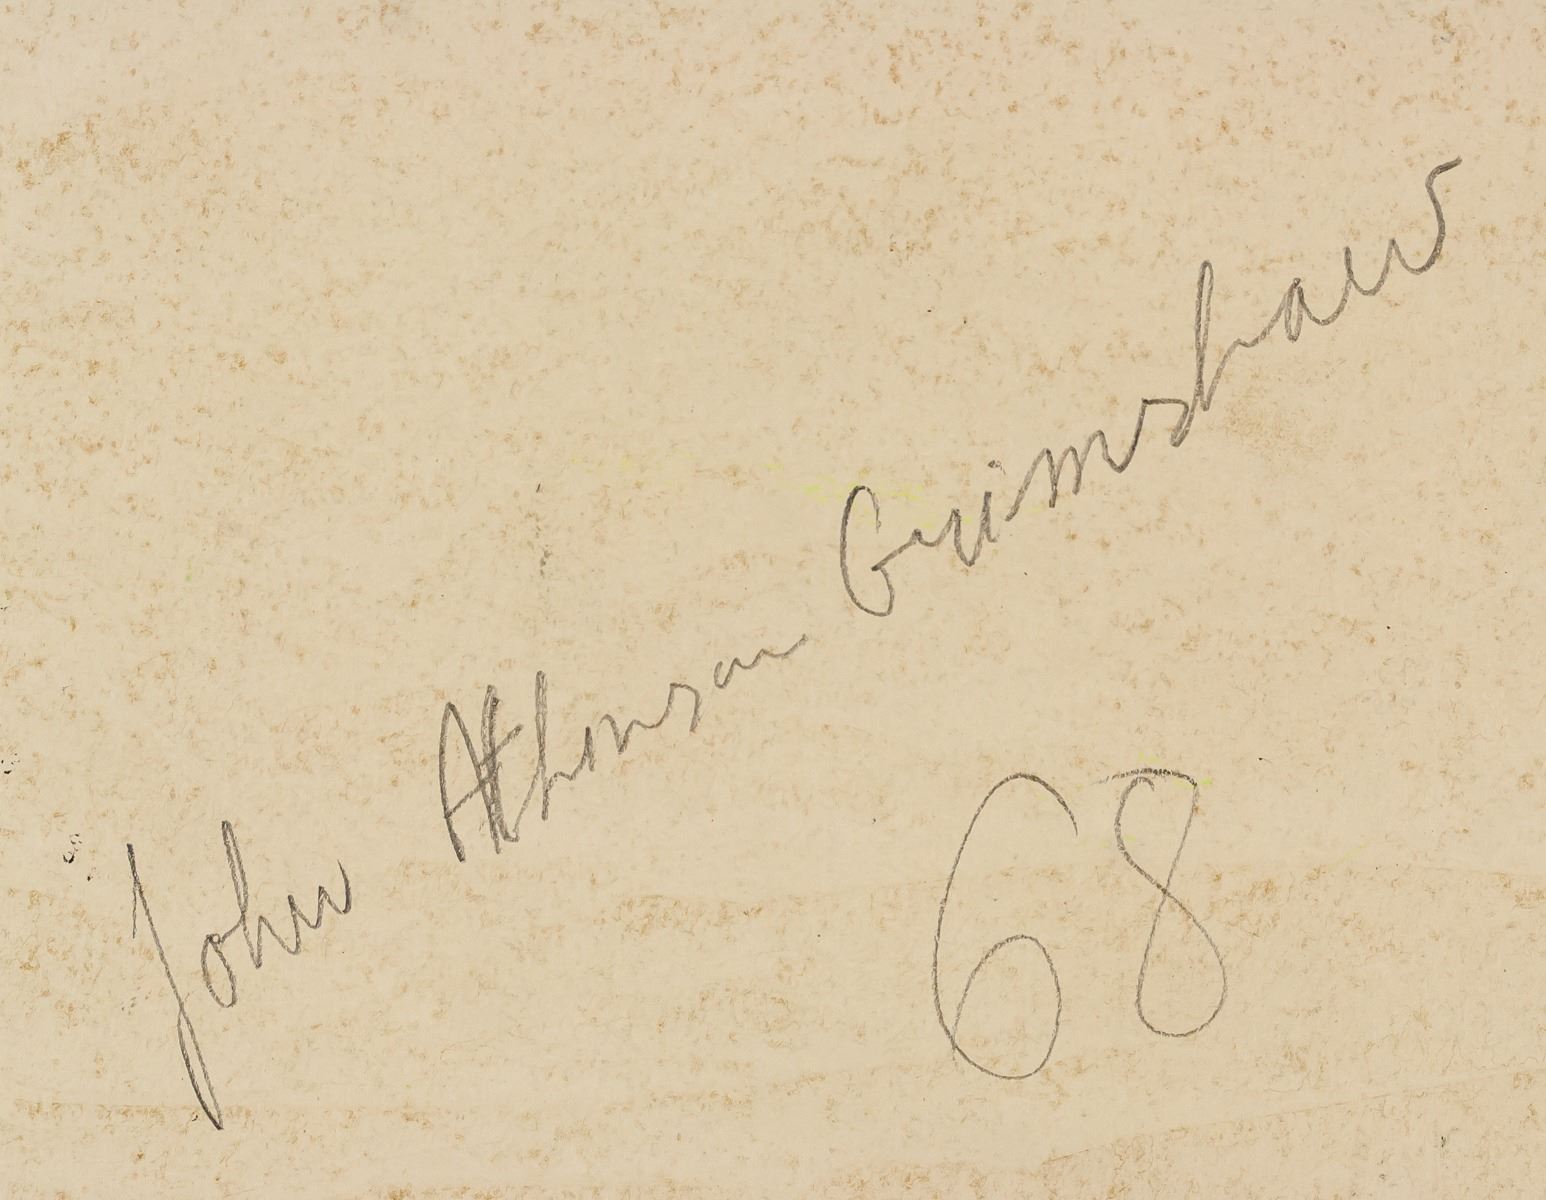 John Atkinson Grimshaw
68